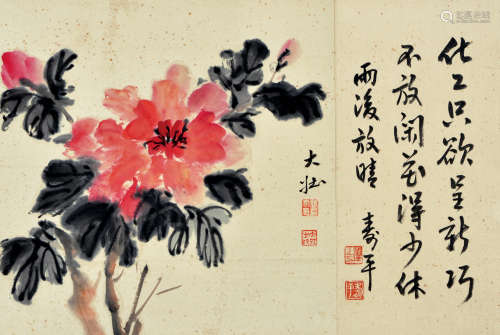 化工只欲呈新巧
不放闲花得少休
雨後放晴
寿平
大壮